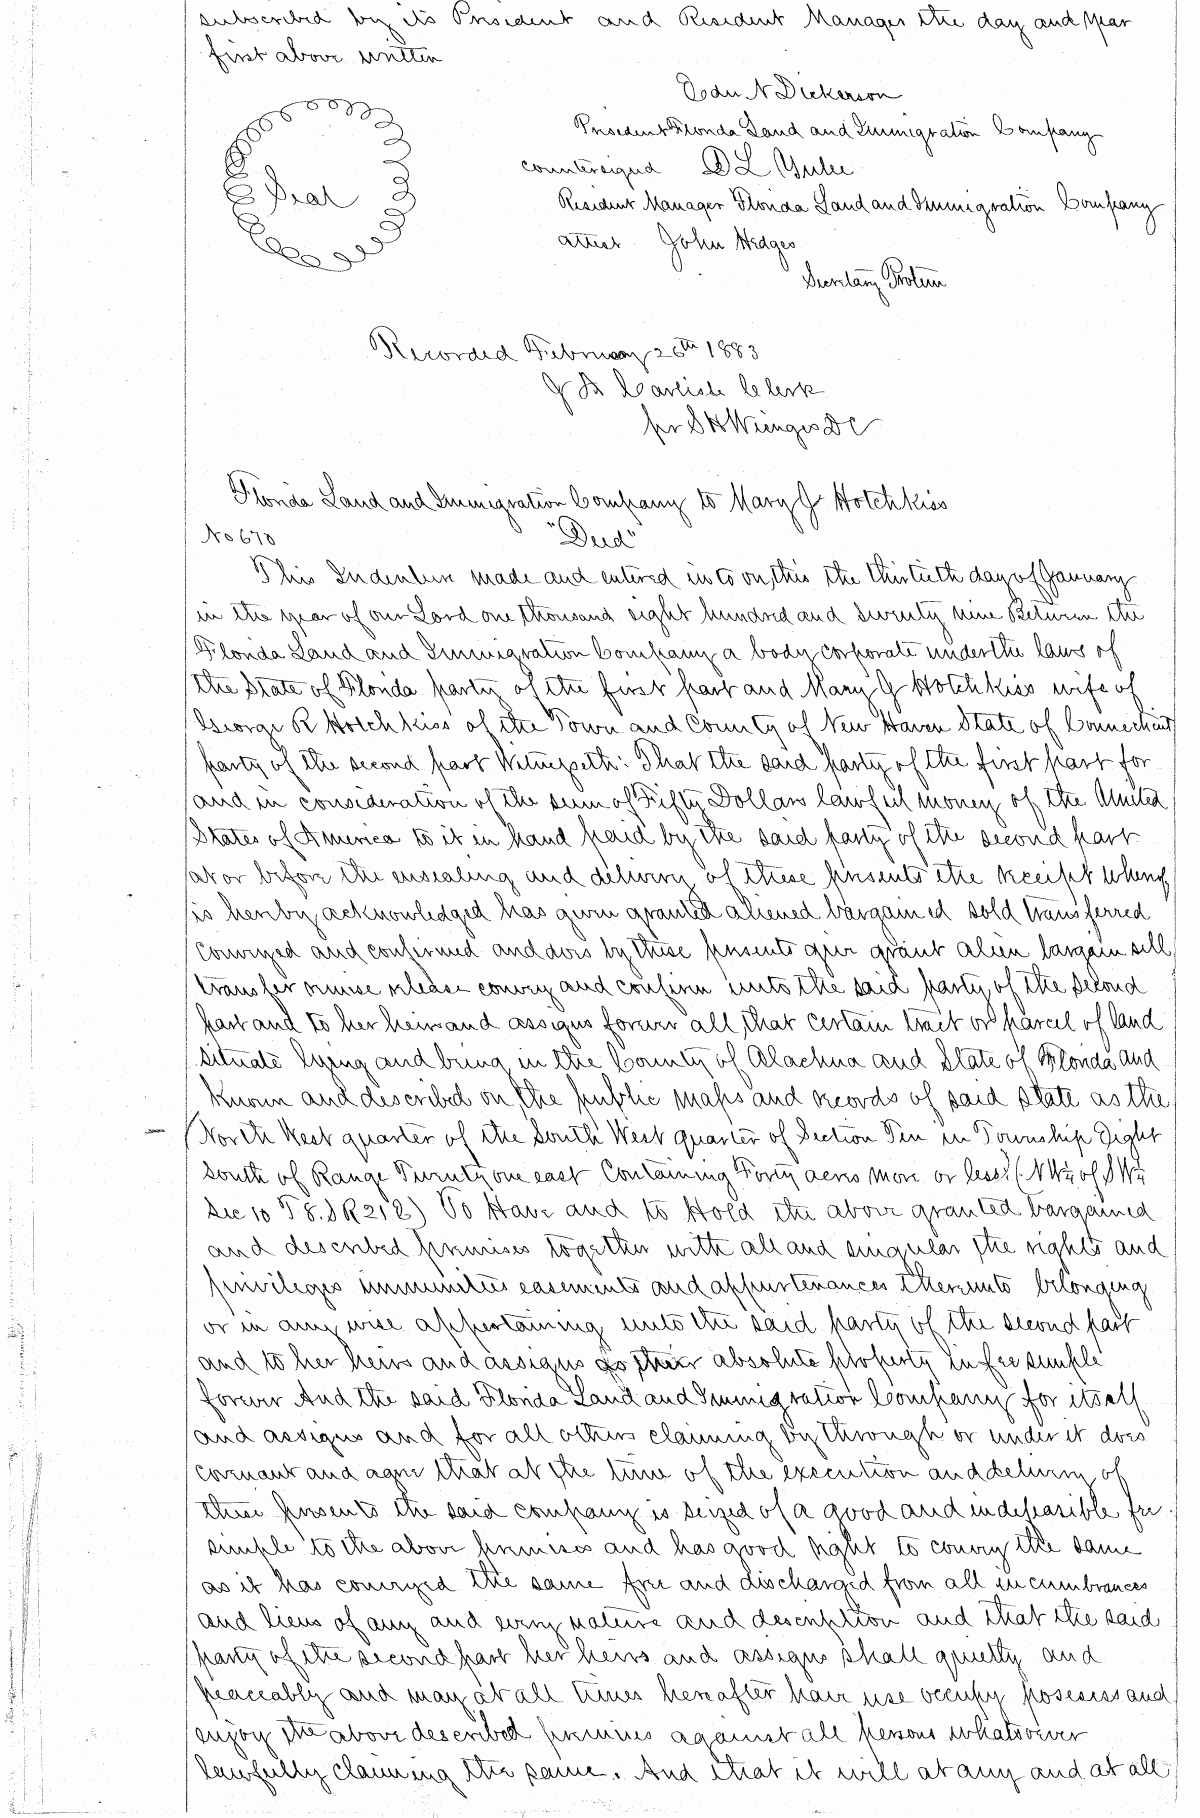 subscribed by its President and Resident Manager the day and year
first above written
Edw N Dickerson
President Florida Land and Immigration Company
Seal
countersigned D L Yulee
Resident Manager Florida Land and Immigration Company
attest John Hedges
Secretary Protem
Recorded February 26th 1883
J A Carlisle Clerk
pr S H Wienges DC
Florida Land and Immigration Company to Mary J Hotchkiss
No 670 "Deed"
This Indenture made and entered into on this the thirtieth day of January
in the year of our Lord one thousand eight hundred and seventy nine Between the
Florida Land and Immigration Company a body corporate under the laws of
the State of Florida party of the first part and Mary J Hotchkiss wife of
George R Hotchkiss of the Town and County of New Haven State of Connecticut
party of the second part Witnesseth: That the said party of the first part for
and in consideration of the sum of Fifty Dollars lawful money of the United
States of America to it in hand paid by the said party of the second part
at or before the ensealing and delivery of these presents the receipt whereof
is hereby acknowledged has given granted aliened bargained sold transferred
conveyed and confirmed and does by these presents give grant alien bargain sell
transfer remise release convey and confirm unto the said party of the second
part and to her heirs and assigns forever all that certain tract or parcel of land
situate lying and being in the County of Alachua and State of Florida and
known and described on the public maps and records of said State as the
North West quarter of the South West quarter of Section Ten in Township Eight
south of Range Twenty one east Containing Forty acres more or less (NW¼ of SW¼
Sec 10 T 8. S R 21 E) To Have and to Hold the above granted bargained
and described premises together with all and singular the rights and
privileges immunities easements and appurtenances thereunto belonging
or in any wise appertaining unto the said party of the second part
and to her heirs and assigns as their absolute property in fee simple
forever And the said Florida Land and Immigration Company for itself
and assigns and for all others claiming by through or under it does
covenant and agree that at the time of the execution and delivery of
these presents the said company is seized of a good and indefeasible fee
simple to the above premises and has good right to convey the same
as it has conveyed the same free and discharged from all incumbrances
and liens of any and every nature and description and that the said
party of the second part her heirs and assigns shall quietly and
peaceably and may at all times hereafter have use occupy posesess and
enjoy the above described premises against all persons whatsoever
lawfully claiming the same. And that it will at any and at all